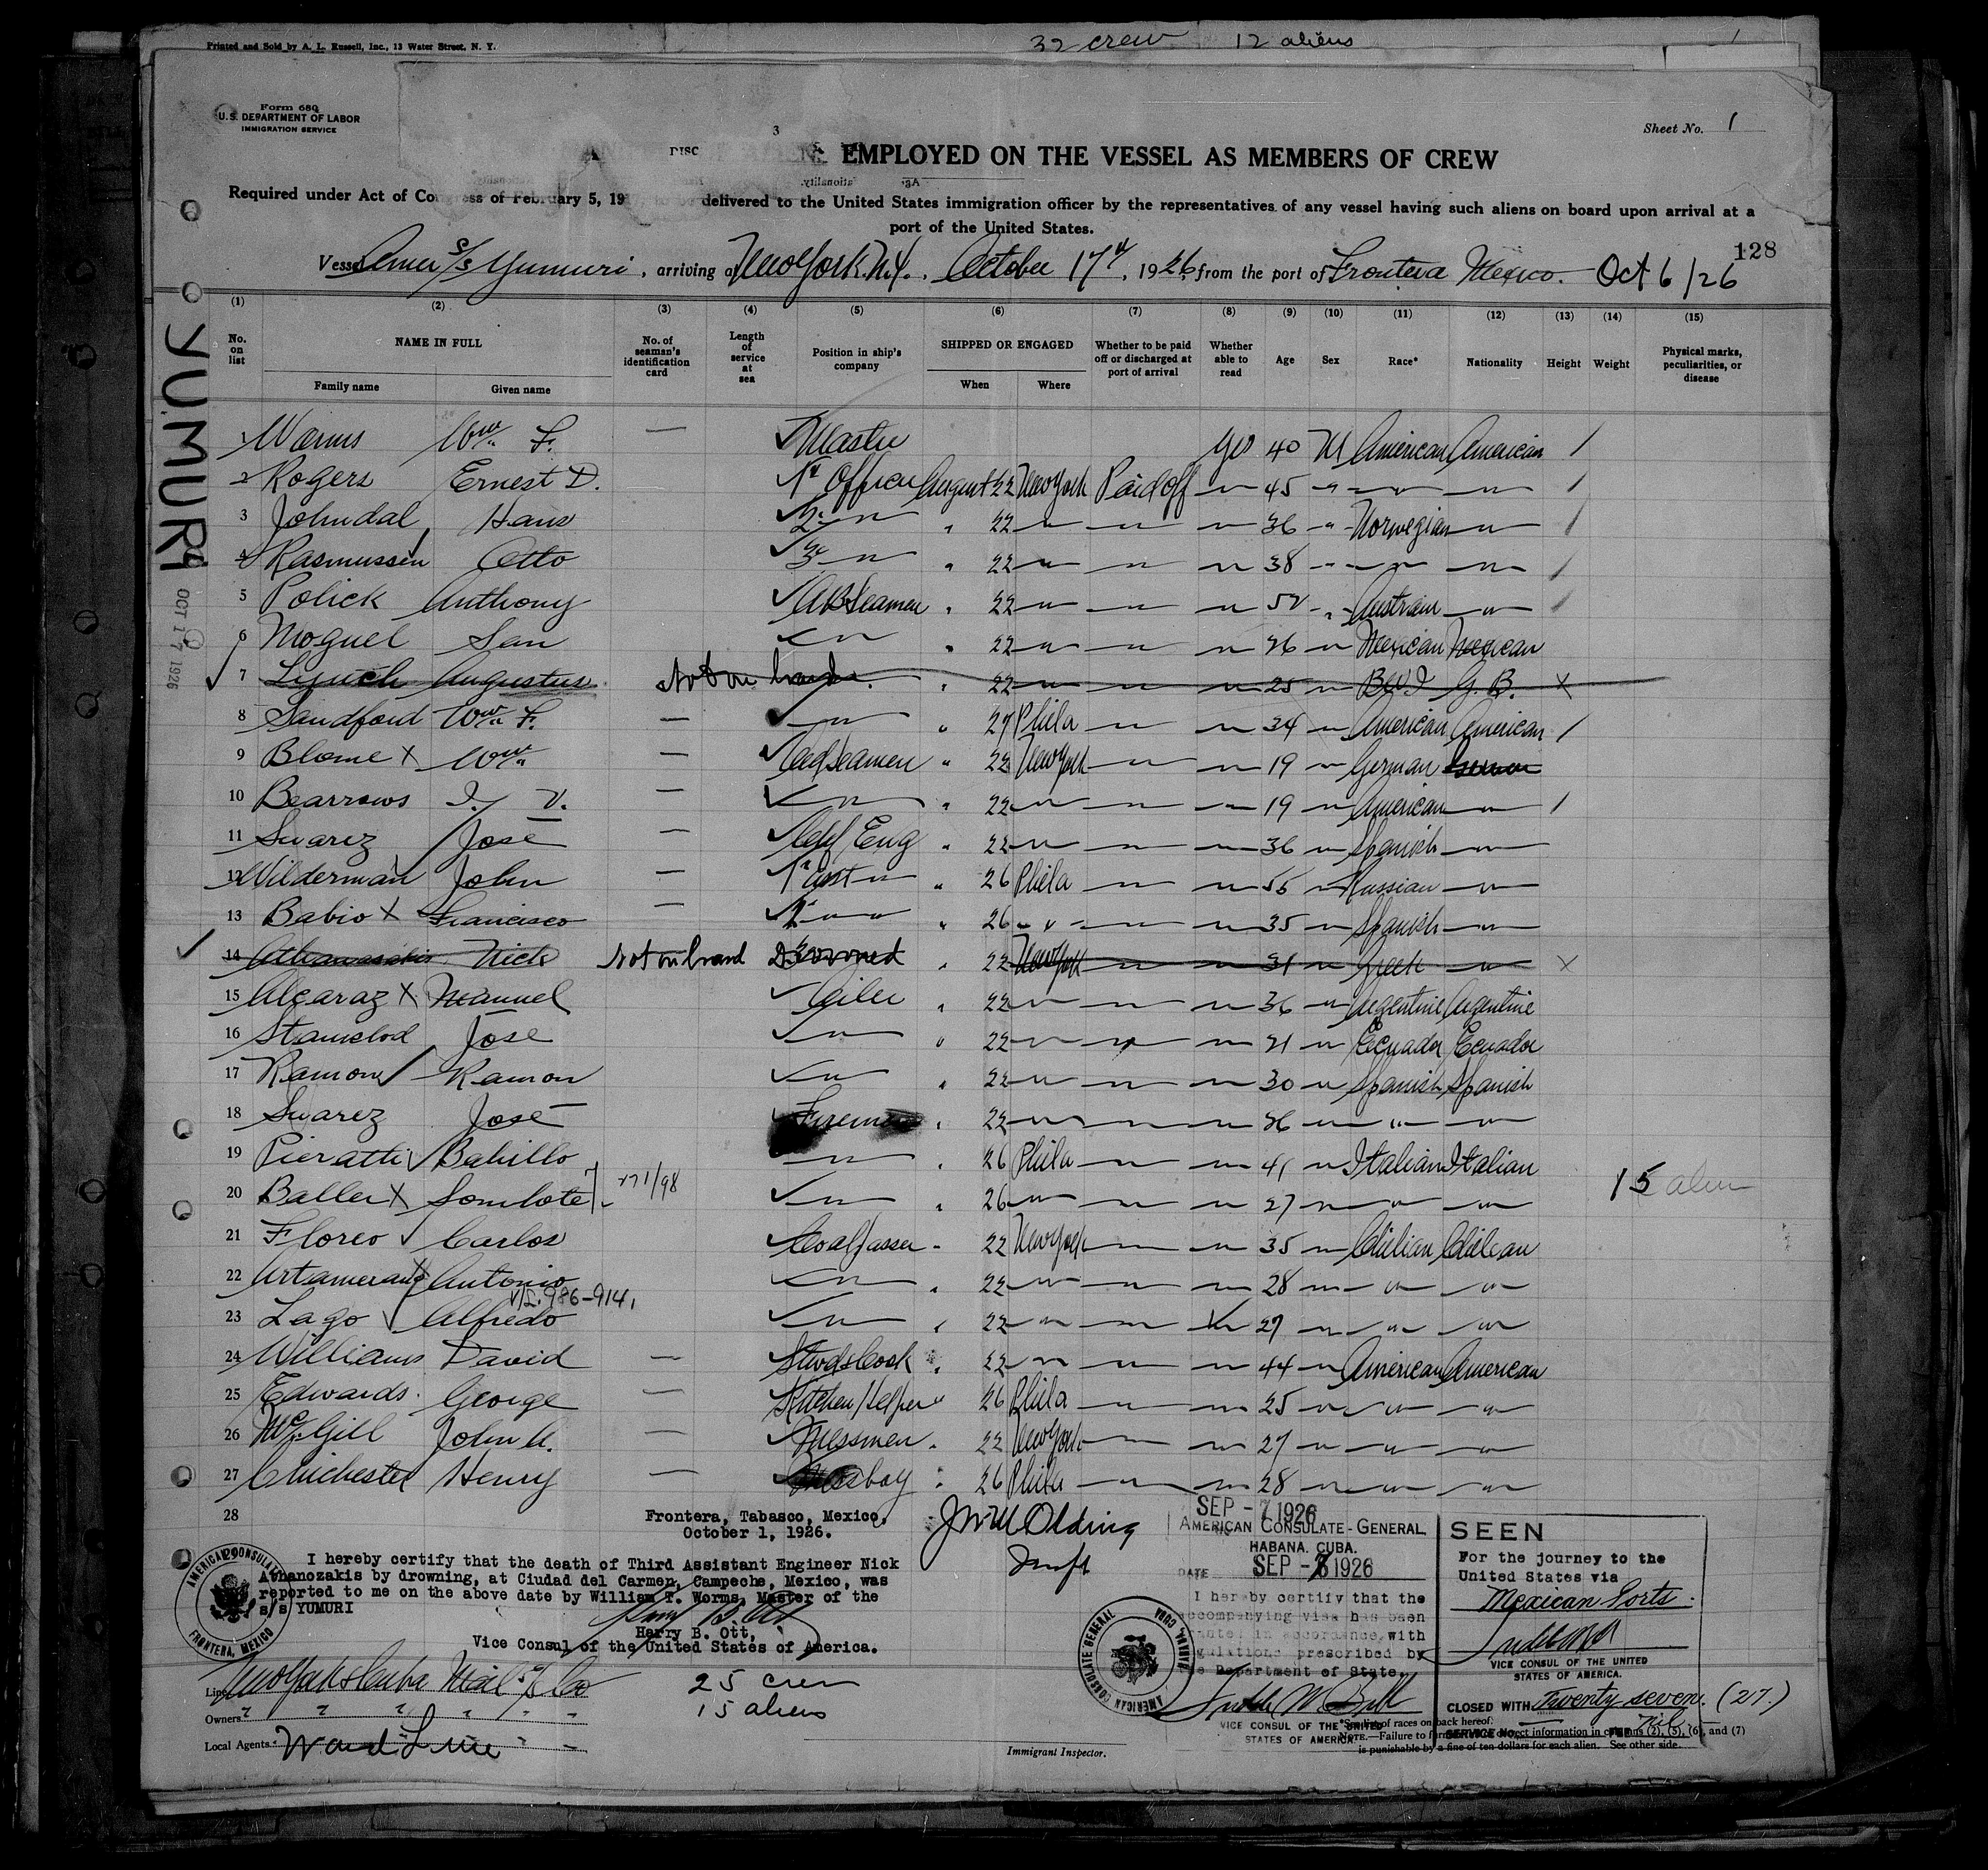 Printed and Sold by A. L. Russell, Inc., 13 Water Street, N. Y.
32 crew 12 aliens
Form 680
U.S. DEPARTMENT OF LABOR
IMMIGRATION SERVICE
3
Sheet No. 1
EMPLOYED ON THE VESSEL AS MEMBERS OF CREW
Required under Act of Congress of February 5, 19 to be delivered to the United States immigration officer by the representatives of any vessel having such aliens on board upon arrival at a
port of the United States.
128
Vessel Amer S/S Yumuri, arriving at New York N.Y., October 17th, 1926, from the port of Frontera Mexico. Oct 6/26
YUMURI
OCT 17 1926
(1) (2) (3) (4) (5) (6) (7) (8) (9) (10) (11) (12) (13) (14) (15)
No. on list NAME IN FULL Family name Given name No. of seaman's identification card Length of service at sea Position in ship's company SHIPPED OR ENGAGED When Where Whether to be paid off or discharged at port of arrival Whether able to read Age Sex Race* Nationality Height Weight Physical marks, peculiarities, or disease
1 Worms Wm F. — Master Yes 40 M American American /
2 Rogers Ernest D. 1st Officer August 22 New York Paid off " 45 " " " /
3 Johndal Hans 2 " " 22 " " " 36 " Norwegian " /
4 Rasmussen Otto 3 " " 22 " " " 38 " " " /
5 Polick Anthony AB Seamen " 22 " " " 52 " Austrian " /
6 Moguel San " " 22 " " " 26 " Mexican Mexican
7 Lynch Augustus Not on board " " 22 " " " 25 " B.W.I G.B. X
8 Sandford Wm F. — " " 27 Phila " " 34 " American American /
9 Blome X Wm — Ord Seamen " 22 New York " " 19 " German German
10 Bearrows I. V. — " " 22 " " " 19 " American " /
11 Suarez Jose — Chf Eng " 22 " " " 36 " Spanish "
12 Wilderman John — 1st Asst " " 26 Phila " " 55 " Russian "
13 Babio X Francisco — " " " 26 " " " 35 " Spanish "
14 Nick Not on board Drowned " 22 New York " " 31 " Greek " X
15 Alcaraz X Manuel Oiler " 22 " " " 36 " Argentine Argentine
16 Jose " " 22 " " " 21 " Ecuador Ecuador
17 Ramon Ramon " " 22 " " " 30 " Spanish Spanish
18 Suarez Jose Firemen " 22 " " " 36 " " "
19 Pieratti Bahillo " " 26 Phila " " 41 " Italian Italian
20 Baller X Sombote " " 26 " " " 27 " " "
15 alien
21 Floreo Carlos Coal Passer " 22 New York " " 35 " Chilian Chilean
22 Antonio " " 22 " " " 28 " " "
V/S. 986-914,
23 Lago Alfredo " " 22 " " " 27 " " "
24 Williams David — Stwds Cook " 22 " " " 44 " American American
25 Edwards George — Kitchen Helper " 26 Phila " " 25 " " "
26 McGill John — Messmen " 22 New York " " 27 " " "
27 Chichester Henry — Messboy " 26 Phila " " 28 " " "
28
Frontera, Tabasco, Mexico,
October 1, 1926.
29
I hereby certify that the death of Third Assistant Engineer Nick
Athanozakis by drowning, at Ciudad del Carmen, Campeche, Mexico, was
reported to me on the above date by William T. Worms, Master of the
s/s YUMURI
Harry B. Ott,
Vice Consul of the United States of America.
AMERICAN CONSULATE
FRONTERA, MEXICO
SEP - 7 1926
AMERICAN CONSULATE-GENERAL
HABANA. CUBA.
DATE SEP - 7 1926
I hereby certify that the
accompanying visa has been
granted in accordance with
regulations prescribed by
the Department of State.
VICE CONSUL OF THE UNITED
STATES OF AMERICA
AMERICAN CONSULATE GENERAL HABANA, CUBA
SEEN
For the journey to the
United States via
Mexican Ports.
VICE CONSUL OF THE UNITED
STATES OF AMERICA.
CLOSED WITH Twenty seven. (27.)
SERVICE NO.
Line New York & Cuba Mail S/S Co
Owners " " " " " "
Local Agents Ward Line
25 crew
15 aliens
Immigrant Inspector.
*See list of races on back hereof.
NOTE.—Failure to furnish correct information in columns (2), (5), (6), and (7)
is punishable by a fine of ten dollars for each alien. See other side.